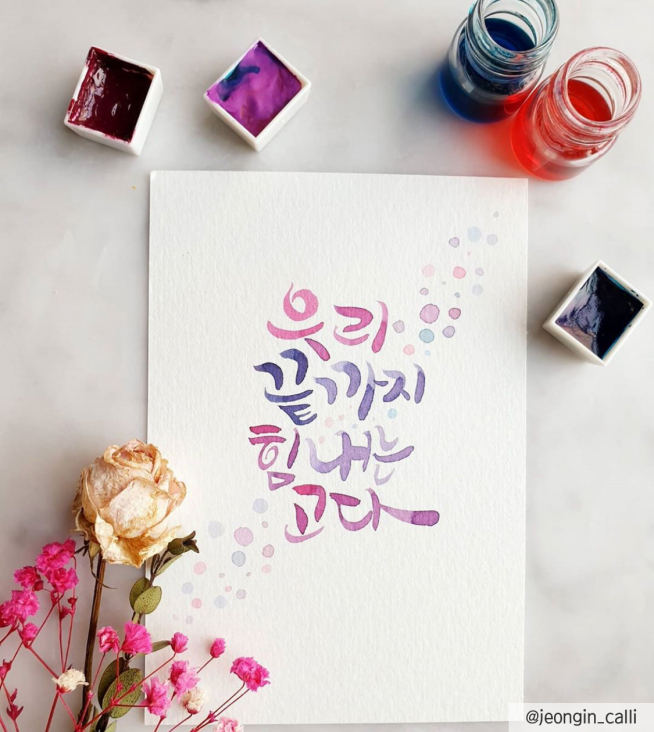 우리
끝까지
힘내는
고다
@jeongin_calli